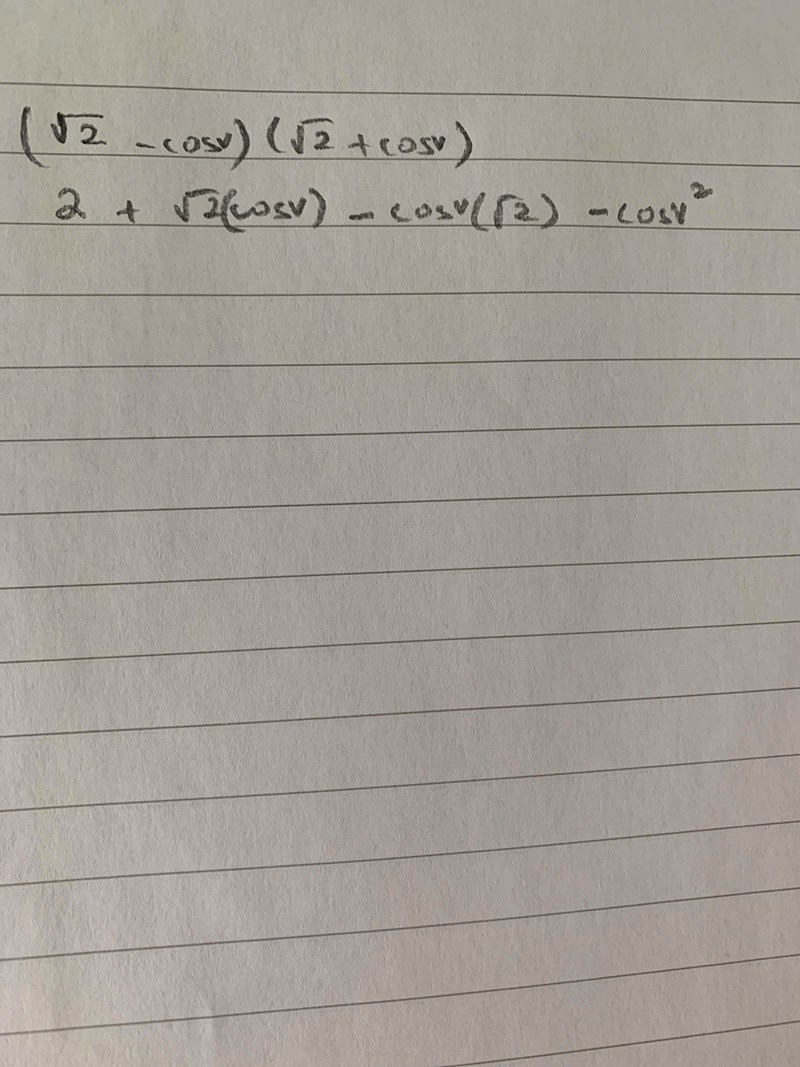 (√2 - cosv)(√2 + cosv)
2 + √2(cosv) - cosv(√2) - cosv²